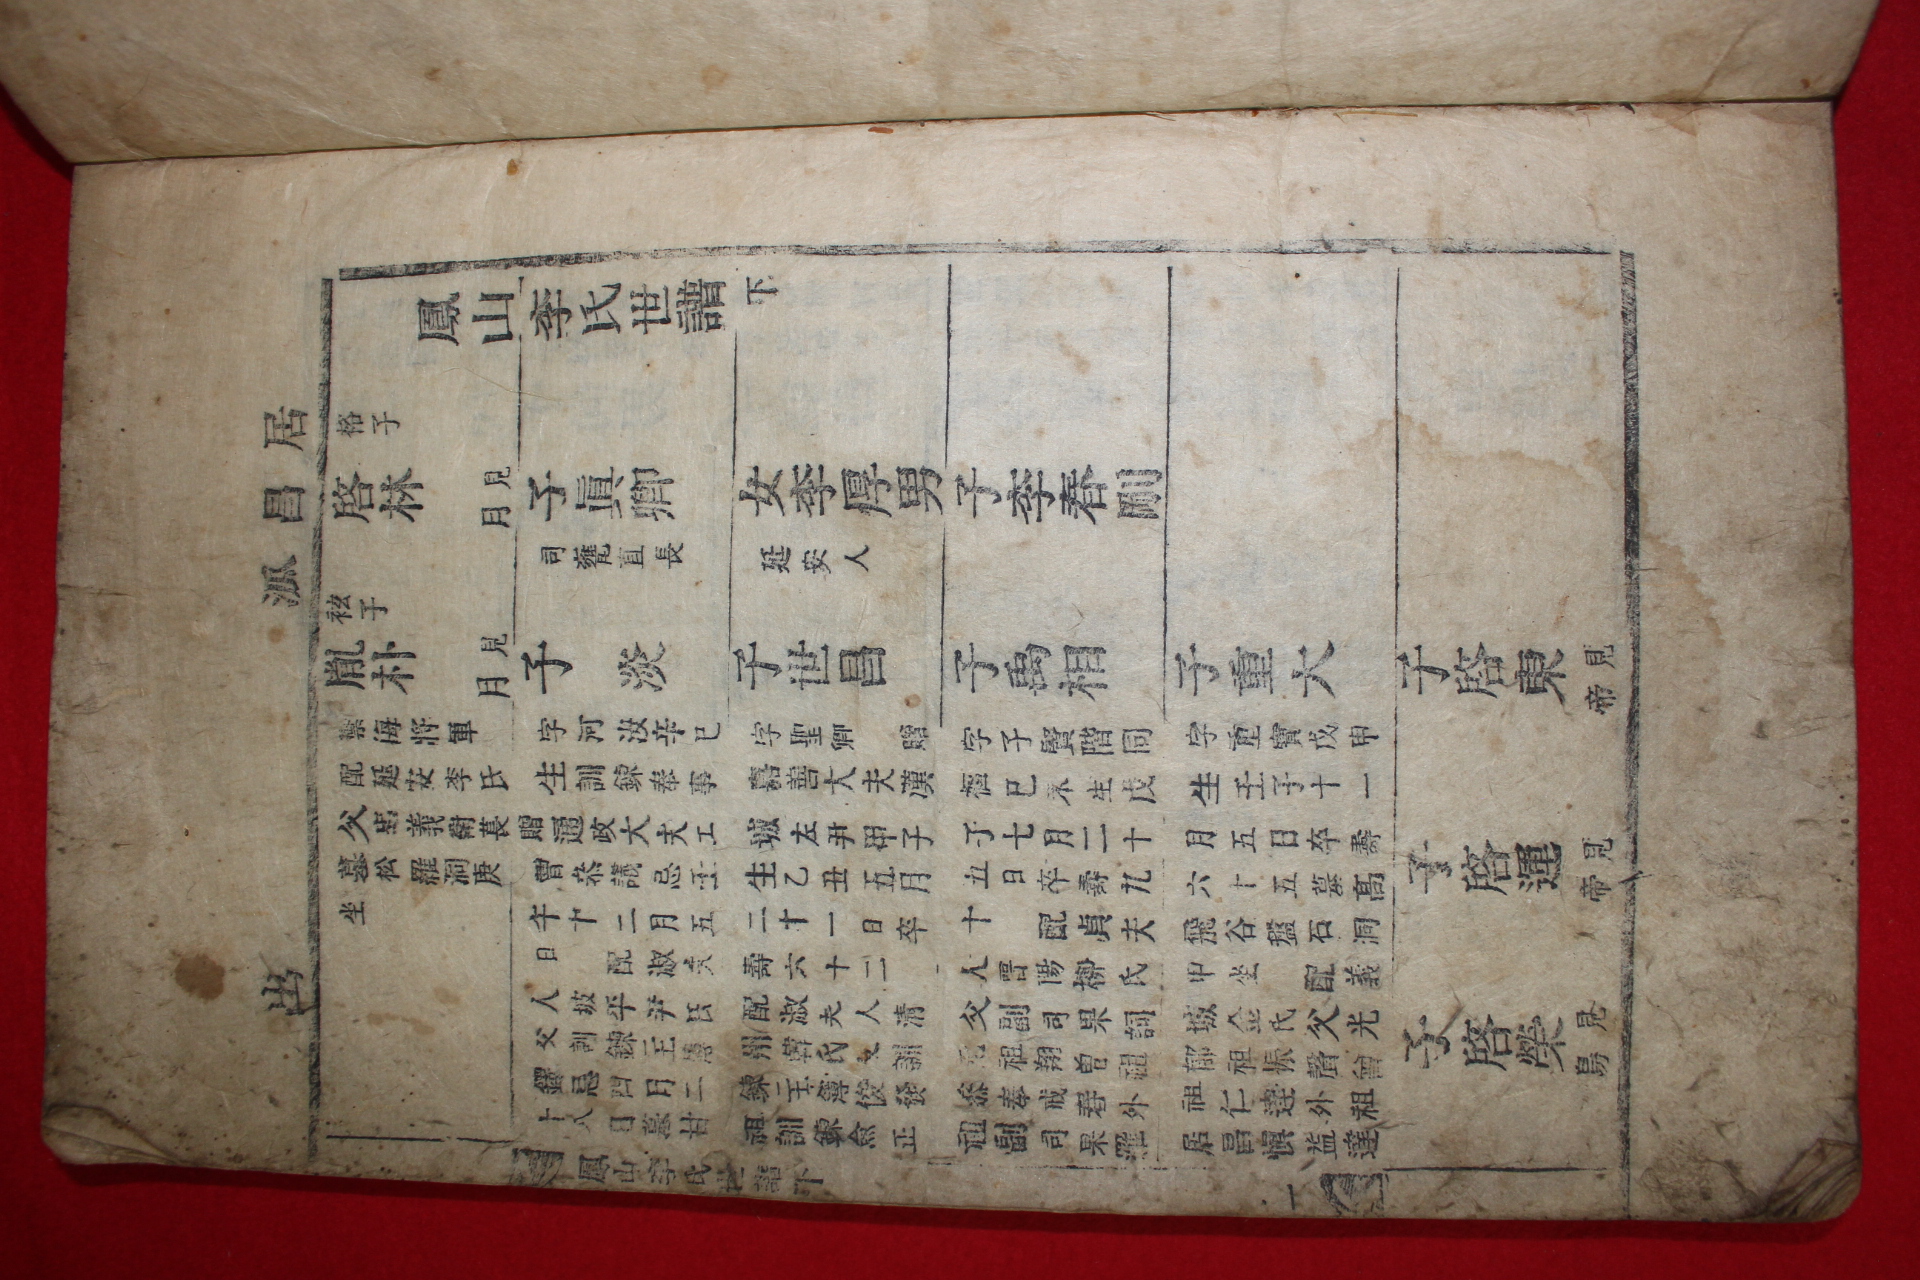 居昌派
出
鳳山李氏世譜下
格子
啓林
見月
子眞卿
司甕直長
女李厚男
延安人
子李春剛
祫子
胤朴
見月
禦海將軍
配延安李氏
父忠義衛萇
墓松羅洞庚
坐
子淡
字河汝辛巳
生訓鍊奉事
贈通政大夫工
曹叅議忌壬
午十二月五
日 配淑夫
人坡平尹氏
父訓鍊主簿
鐸忌四月二
十八日墓甘
子世昌
字聖卿 贈
嘉善大夫漢
城左尹甲子
生乙丑五月
二十一日卒
壽六十二
配淑夫人清
州韓氏父訓
鍊主簿俊發
祖訓鍊僉正
子禹相
字子賢階同
樞己未生戊
子七月二十
五日卒壽九
十 配貞夫
人晋陽柳氏
父副司果詞
元祖翔曾祖
叅奉戒春外
祖副司果羅
子重大
字重寶戊申
生壬子十一
月五日卒壽
六十五墓高
飛谷盤石洞
甲坐 配義
城金氏父光
郁祖振聲曾
祖仁達外祖
居昌愼益達
子啓東
見帝
子啓運
見帝
子啓榮
見鳥
鳳山李氏世譜下
一